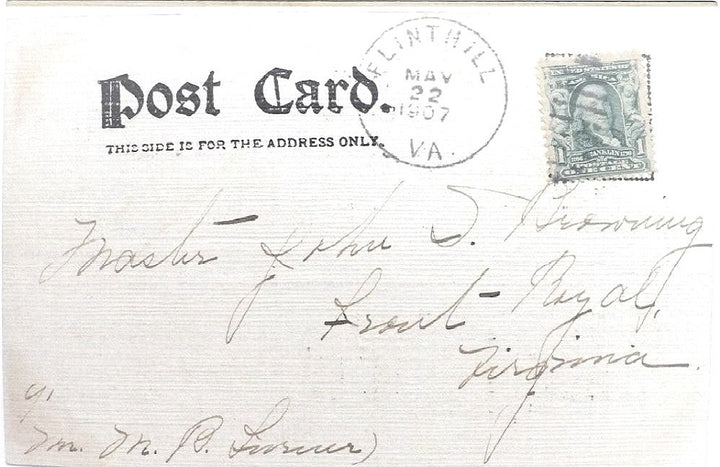 Post Card.
THIS SIDE IS FOR THE ADDRESS ONLY.
FLINTHILL
MAY
22
1907
VA.
1 FRANKLIN
Master John S. Browning
Front Royal,
Virginia.
M. B.